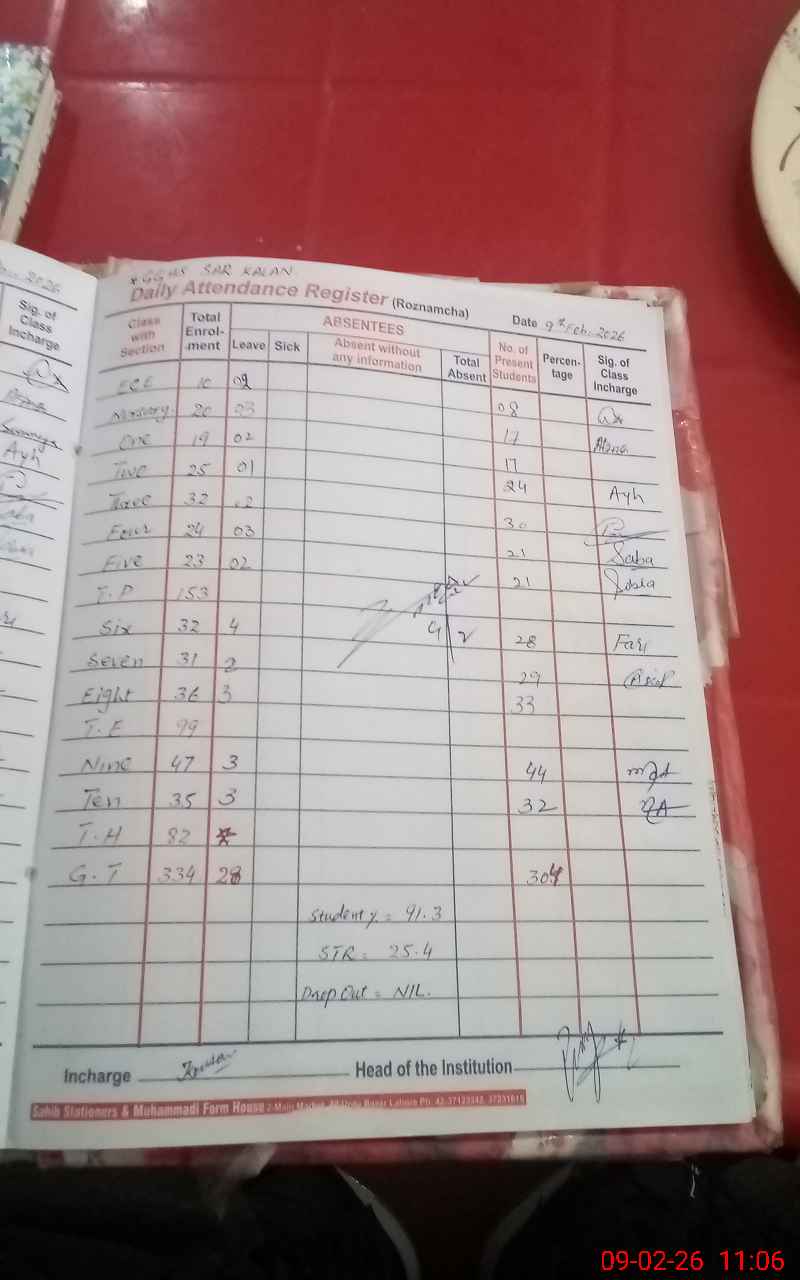 2026
Sig. of
Class
Incharge
Ayh
*GGHS SAR KALAN
Daily Attendance Register (Roznamcha)
Date 9th Feb. 2026
Class with Section Total Enrol-ment ABSENTEES Leave Sick Absent without any information Total Absent No. of Present Students Percen-tage Sig. of Class Incharge
ECE 10 02 08
Nursery 20 03 17
One 19 02 17
Two 25 01 24 Ayh
Three 32 02 30
Four 24 03 21 Saba
Five 23 02 21 Sobia
T.P 153
Six 32 4 28 Fari
Seven 31 2 29
Eight 36 3 33
T.E 99
Nine 47 3 44
Ten 35 3 32
T.H 82
G.T 334 28 304
Student % = 91.3
STR = 25.4
Drop Out = NIL.
Incharge
Head of the Institution
Sahib Stationers & Muhammadi Form House
09-02-26 11:06